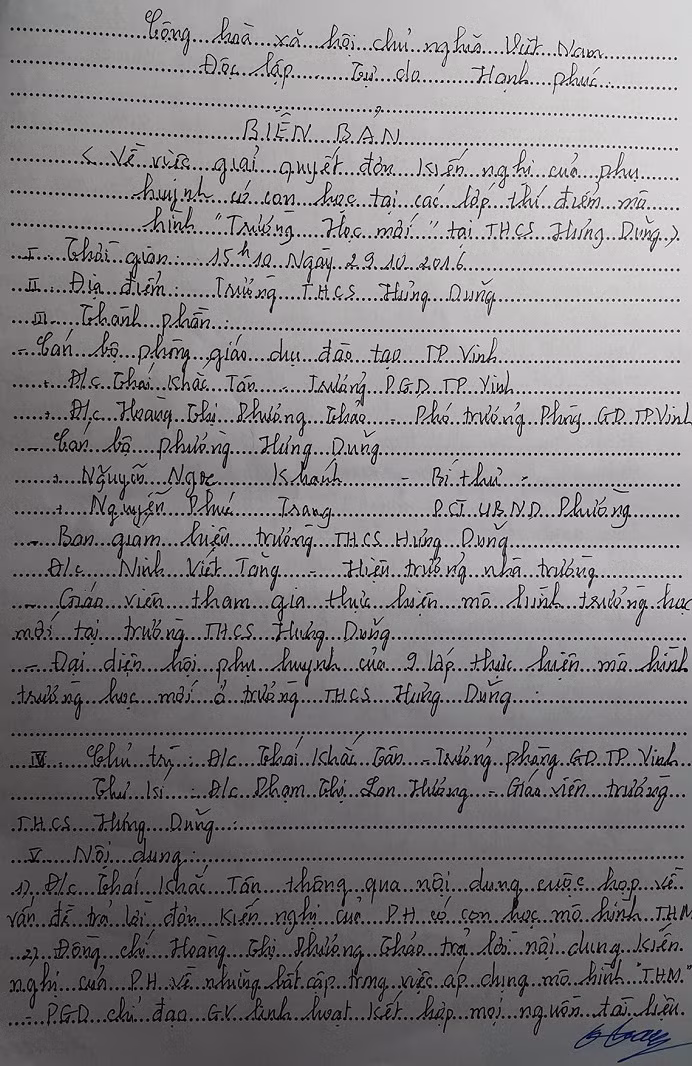 Cộng hoà xã hội chủ nghĩa Việt Nam
Độc lập Tự do Hạnh phúc
BIÊN BẢN
< Về việc giải quyết đơn kiến nghị của phụ
huynh có con học tại các lớp thí điểm mô
hình "Trường Học mới" tại THCS Hưng Dũng >
I. Thời gian: 15h10 Ngày 29.10.2016
II. Địa điểm: Trường THCS Hưng Dũng
III. Thành phần:
- Cán bộ phòng giáo dục đào tạo TP Vinh
+ Đ/c Thái Khắc Tân - Trưởng P.G.D TP Vinh
+ Đ/c Hoàng Thị Phương Thảo - Phó trưởng Phòng GD TP Vinh
- Cán bộ phường Hưng Dũng
+ Nguyễn Ngọc Khánh - Bí thư -
+ Nguyễn Phú Trang P.CT UBND Phường
- Ban giám hiệu trường THCS Hưng Dũng
Đ/c Ninh Viết Tăng - Hiệu trưởng nhà trường
- Giáo viên tham gia thực hiện mô hình trường học
mới tại trường THCS Hưng Dũng
- Đại diện hội phụ huynh của 9 lớp thực hiện mô hình
trường học mới ở trường THCS Hưng Dũng.
IV. Chủ trì: Đ/c Thái Khắc Tân - Trưởng phòng GD TP Vinh
Thư kí: Đ/c Phạm Thị Lan Hương - Giáo viên trường
THCS Hưng Dũng.
V. Nội dung:
1) Đ/c Thái Khắc Tân thông qua nội dung cuộc họp về
vấn đề trả lời đơn kiến nghị của P.H có con học mô hình T.H.M
2) Đồng chí Hoàng Thị Phương Thảo trả lời nội dung kiến
nghị của P.H về những bất cập trong việc áp dụng mô hình "T.H.M"
- P.G.D chỉ đạo G.V linh hoạt kết hợp mọi nguồn tài liệu.